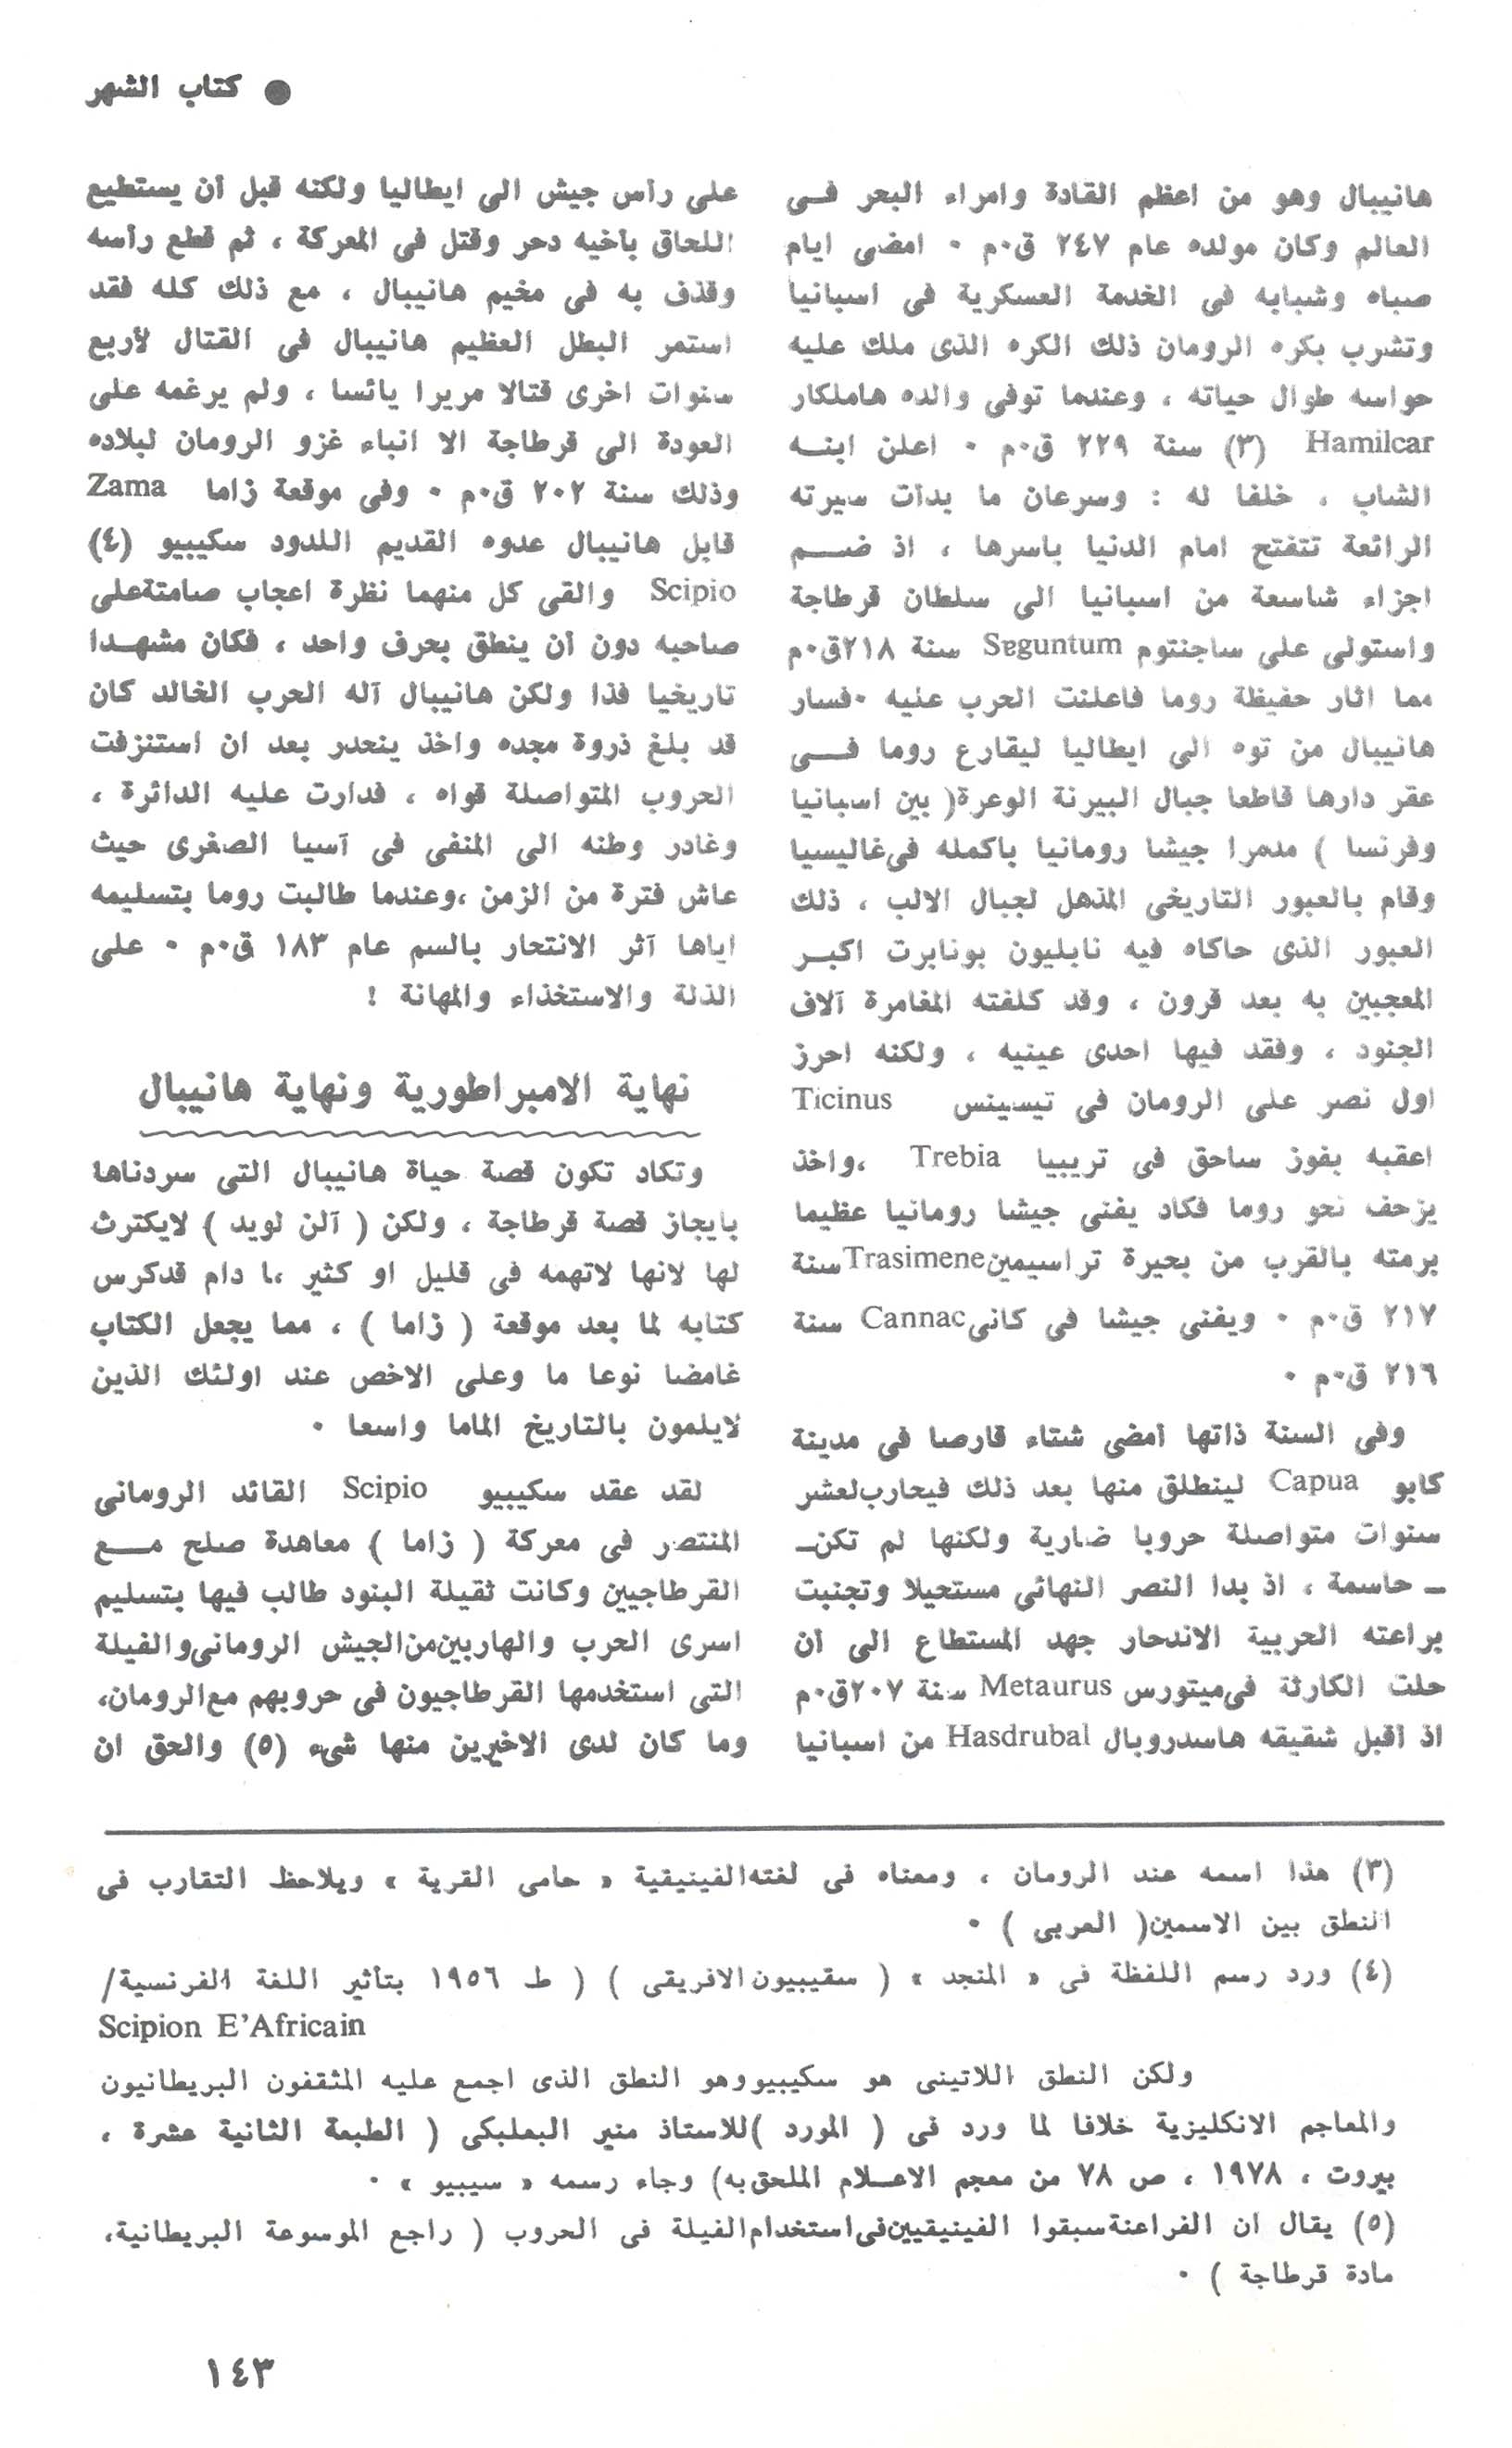 ● كتاب الشهر
هانيبال وهو من اعظم القادة وامراء البحر فــى
العالم وكان مولده عام ٢٤٧ ق٠م ٠ امضى ايام
صباه وشبابه فى الخدمة العسكرية فى اسبانيا
وتشرب بكره الرومان ذلك الكره الذى ملك عليه
حواسه طوال حياته ، وعندما توفى والده هاملكار
Hamilcar (٣) سنة ٢٢٩ ق٠م ٠ اعلن ابنــه
الشاب ، خلفا له : وسرعان ما بدأت سيرته
الرائعة تتفتح امام الدنيا باسرها ، اذ ضــم
اجزاء شاسعة من اسبانيا الى سلطان قرطاجة
واستولى على ساجنتوم Saguntum سنة ٢١٨ق٠م
مما اثار حفيظة روما فاعلنت الحرب عليه ٠فسار
هانيبال من توه الى ايطاليا ليقارع روما فــى
عقر دارها قاطعا جبال البيرنة الوعرة( بين اسبانيا
وفرنسا ) مدمرا جيشا رومانيا باكمله فى غاليسيا
وقام بالعبور التاريخى المذهل لجبال الالب ، ذلك
العبور الذى حاكاه فيه نابليون بونابرت اكبـر
المعجبين به بعد قرون ، وقد كلفته المغامرة آلاف
الجنود ، وفقد فيها احدى عينيه ، ولكنه احرز
اول نصر على الرومان فى تيسينس Ticinus
اعقبه بفوز ساحق فى تريبيا Trebia ،واخذ
يزحف نحو روما فكاد يفنى جيشا رومانيا عظيما
برمته بالقرب من بحيرة تراسيمين Trasimene سنة
٢١٧ ق٠م ٠ ويفنى جيشا فى كانى Cannac سنة
٢١٦ ق٠م ٠
وفى السنة ذاتها أمضى شتاء قارصا فى مدينة
كابو Capua لينطلق منها بعد ذلك فيحارب لعشر
سنوات متواصلة حروبا ضارية ولكنها لم تكنــ
ــ حاسمة ، اذ بدا النصر النهائى مستحيلا وتجنبت
براعته الحربية الاندحار جهد المستطاع الى أن
حلت الكارثة فى ميتورس Metaurus سنة ٢٠٧ق٠م
اذ أقبل شقيقه هاسدروبال Hasdrubal من اسبانيا
على رأس جيش الى ايطاليا ولكنه قبل أن يستطيع
اللحاق بأخيه دحر وقتل فى المعركة ، ثم قطع رأسه
وقذف به فى مخيم هانيبال ، مع ذلك كله فقد
استمر البطل العظيم هانيبال فى القتال لأربع
سنوات اخرى قتالا مريرا يائسا ، ولم يرغمه على
العودة الى قرطاجة الا انباء غزو الرومان لبلاده
وذلك سنة ٢٠٢ ق٠م ٠ وفى موقعة زاما Zama
قابل هانيبال عدوه القديم اللدود سكيبيو (٤)
Scipio والقى كل منهما نظرة اعجاب صامتة على
صاحبه دون أن ينطق بحرف واحد ، فكان مشهــدا
تاريخيا فذا ولكن هانيبال آله الحرب الخالد كان
قد بلغ ذروة مجده واخذ ينحدر بعد ان استنزفت
الحروب المتواصلة قواه ، فدارت عليه الدائرة ،
وغادر وطنه الى المنفى فى آسيا الصغرى حيث
عاش فترة من الزمن ،وعندما طالبت روما بتسليمه
اياها آثر الانتحار بالسم عام ١٨٣ ق٠م ٠ على
الذلة والاستخذاء والمهانة !
نهاية الامبراطورية ونهاية هانيبال
وتكاد تكون قصة حياة هانيبال التى سردناها
بايجاز قصة قرطاجة ، ولكن ( آلن لويد ) لايكترث
لها لانها لاتهمه فى قليل او كثير ،ا دام قدكرس
كتابه لما بعد موقعة ( زاما ) ، مما يجعل الكتاب
غامضا نوعا ما وعلى الاخص عند اولئك الذين
لايلمون بالتاريخ الماما واسعا ٠
لقد عقد سكيبيو Scipio القائد الرومانى
المنتصر فى معركة ( زاما ) معاهدة صلح مــع
القرطاجيين وكانت ثقيلة البنود طالب فيها بتسليم
اسرى الحرب والهاربين من الجيش الرومانى والفيلة
التى استخدمها القرطاجيون فى حروبهم مع الرومان،
وما كان لدى الاخيرين منها شىء (٥) والحق ان
(٣) هذا اسمه عند الرومان ، ومعناه فى لغته الفينيقية « حامى القرية » ويلاحظ التقارب فى
النطق بين الاسمين( العربى ) ٠
(٤) ورد رسم اللفظة فى « المنجد » ( سقيبيون الافريقى ) ( ط ١٩٥٦ بتأثير اللغة الفرنسية/
Scipion E’Africain
ولكن النطق اللاتينى هو سكيبيو وهو النطق الذى اجمع عليه المثقفون البريطانيون
والمعاجم الانكليزية خلافا لما ورد فى ( المورد )للاستاذ منير البعلبكى ( الطبعة الثانية عشرة ،
بيروت ، ١٩٧٨ ، ص ٧٨ من معجم الاعــلام الملحق به) وجاء رسمه « سيبيو » ٠
(٥) يقال ان الفراعنة سبقوا الفينيقيين فى استخدام الفيلة فى الحروب ( راجع الموسوعة البريطانية،
مادة قرطاجة ) ٠
١٤٣